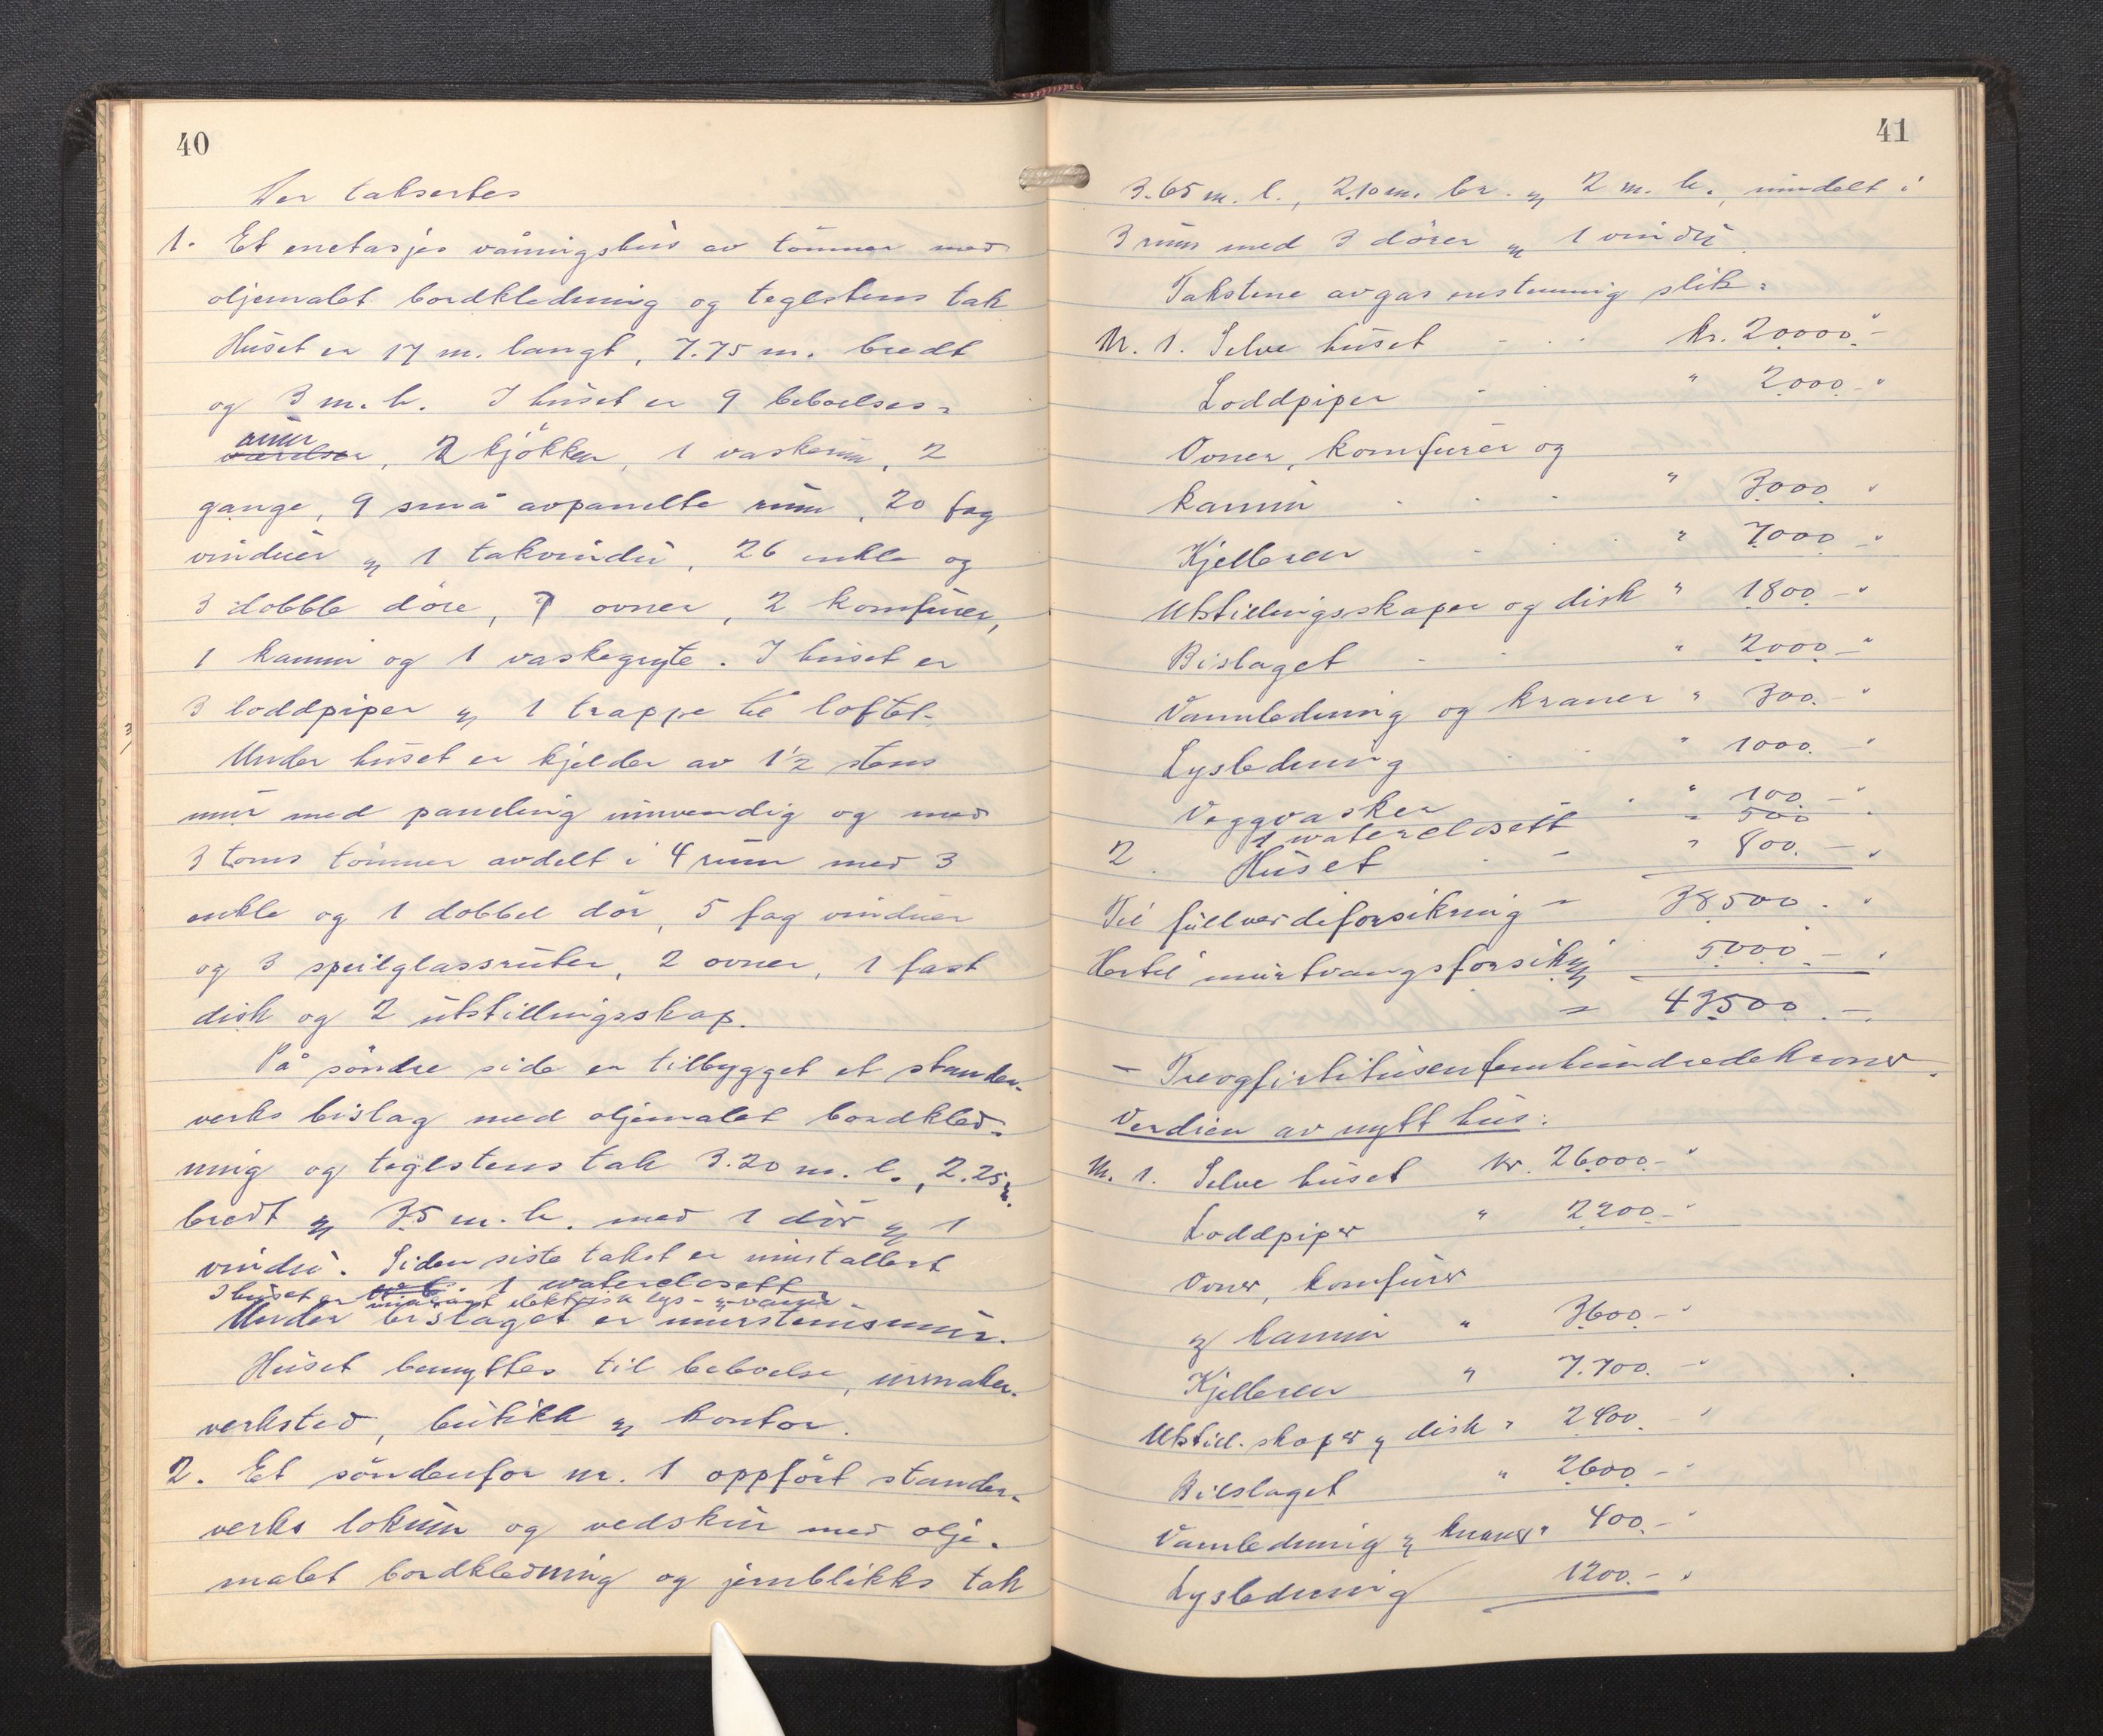 40
Der taksertes
1. Et enetasjes våningshus av tömmer med
oljemalet bordkledning og teglstens tak
Huset er 17 m. langt, 7.75 m. bredt
og 3 m. h. I huset er 9 beboelses-
rum
værelser, 2 kjökken, 1 vaskerum, 2
gange, 9 små avpanelte rum, 20 fag
vinduer og 1 takvindu, 26 enkle og
3 dobble döre, 7 ovner, 2 komfurer,
1 kamin og 1 vaskegryte. I huset er
3 loddpiper og 1 trappe til loftet.
Under huset er kjelder av 1½ stens
mur med paneling innvendig og med
3 toms tömmer avdelt i 4 rum med 3
enkle og 1 dobbel dör, 5 fag vinduer
og 3 speilglassruter, 2 ovner, 1 fast
disk og 2 utstillingsskap.
På söndre side er tilbygget et stander-
verks bislag med oljemalet bordkled-
ning og teglstens tak 3.20 m. l., 2.25 m.
bredt og 3.5 m. h. med 1 dör og 1
vindu. Siden siste takst er innstallert
1 waterclosett
I huset er innlagt elektrisk lys- og vann.
Under bislaget er murstensmur.
Huset benyttes til beboelse, urmaker-
verksted, butikk og kontor.
2. Et söndenfor nr. 1 oppfört stander-
verks lokum og vedskur med olje-
malet bordkledning og jernblikks tak
41
3.65 m. l., 2.10 m. br. og 2 m. h., inndelt i
3 rum med 3 dörer og 1 vindu
Takstene avgas enstemmig slik:
Nr. 1. Selve huset - kr. 20000.-
Loddpiper - " 2000.-
Ovner, komfurer og
kamin - " 3000.
Kjelleren - " 7000.-
Utstillingsskaper og disk " 1800.-
Bislaget - " 2000.-
Vannledning og kraner " 300.-
Lysledning " 1000.-
Veggvasker - " 100.-
1 waterclosett " 500
2. Huset - " 800.-
Til fullverdiforsikring - 38500.
Hertil murtvangsforsikring 5000.-
= 43500.-
- Treogförtitusenfemhundredekroner.
Verdien av nytt hus:
Nr. 1. Selve huset kr. 26000.-
Loddpiper " 2200.-
Ovner, komfurer
og kamin " 3600.-
Kjelleren " 7.700.-
Utstill. skaper og disk " 2400.-
Bislaget " 2600.-
Vannledning og kraner " 400.-
Lysledning 1200.-